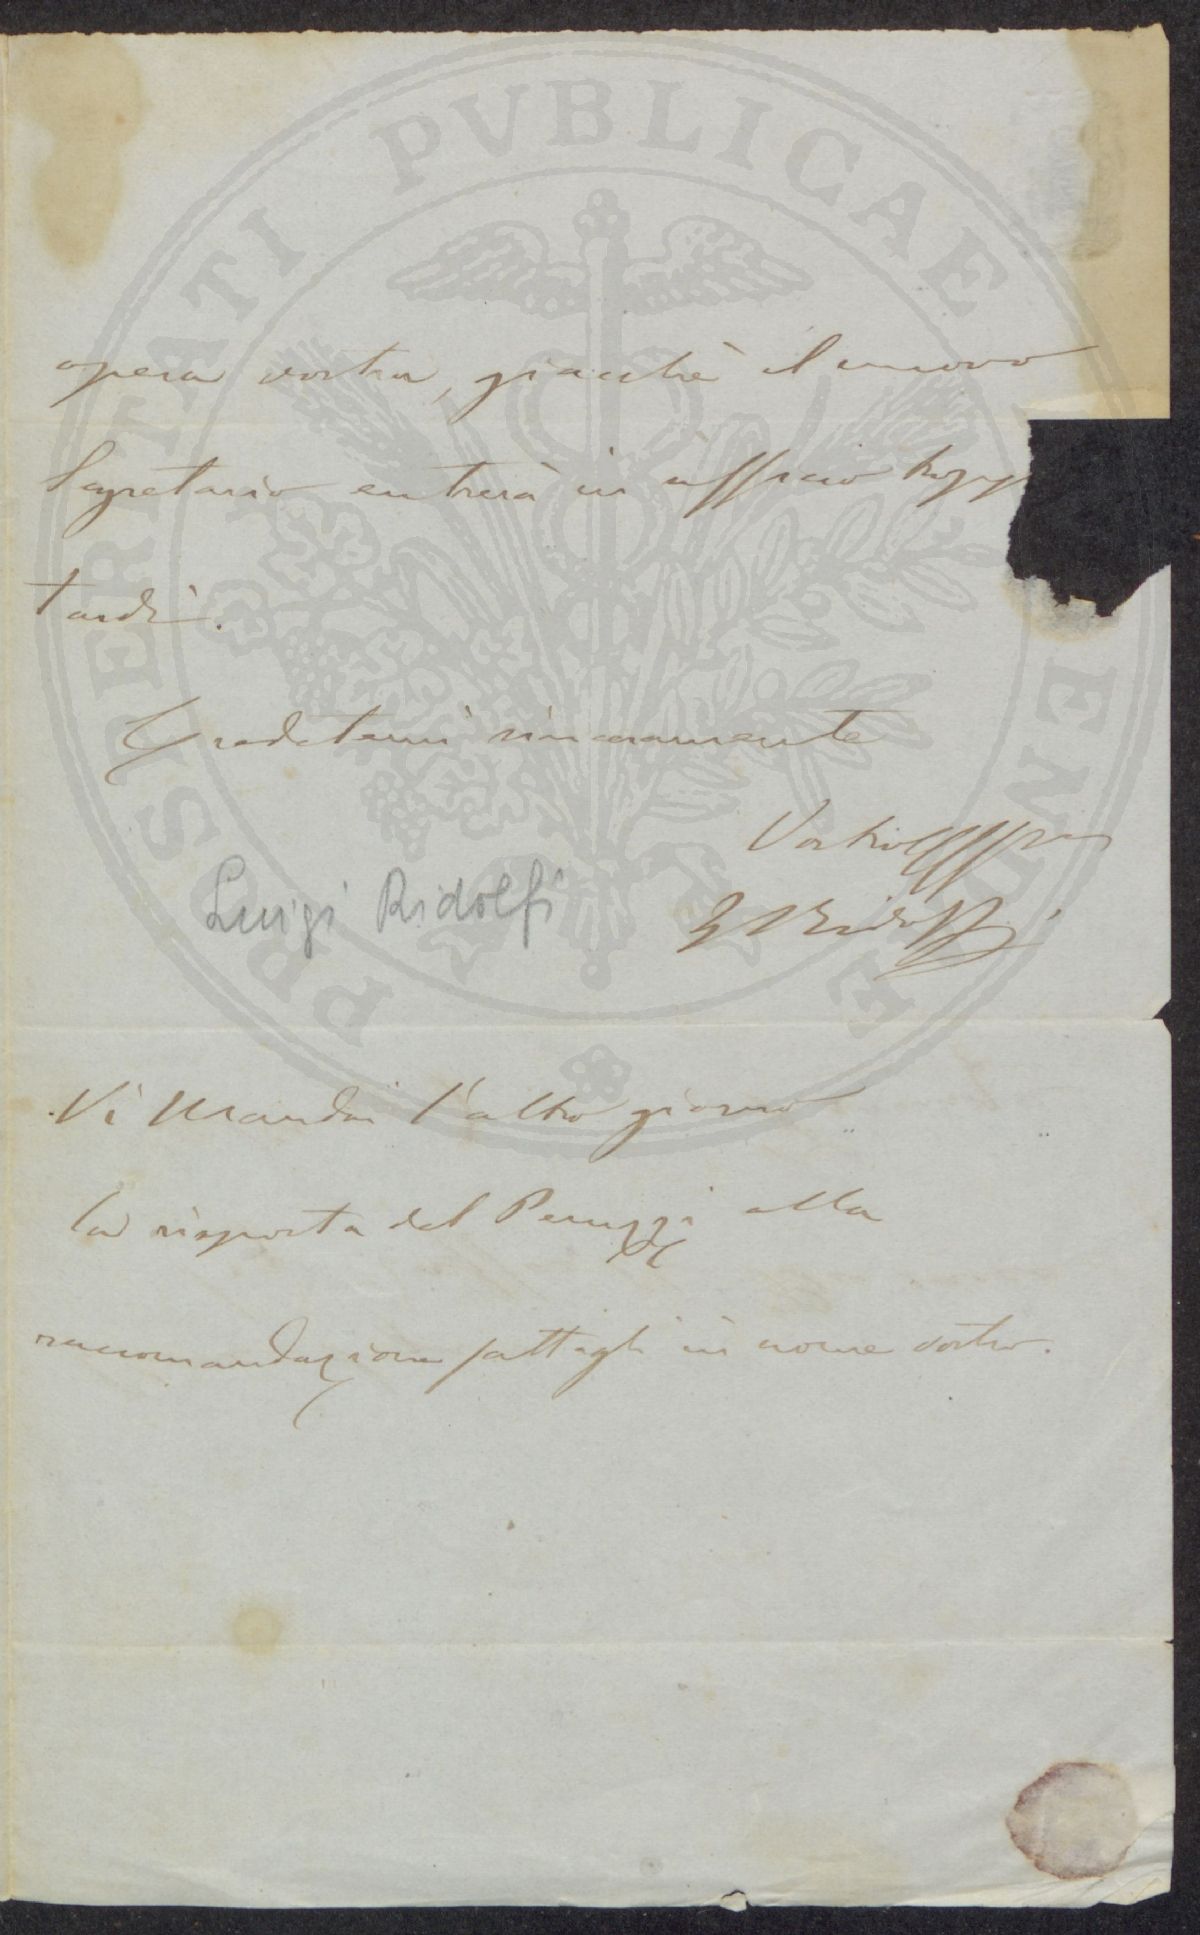 PROSPERITATI PVBLICAE AVGENDAE
opera vostra, giacchè il nuovo
Segretario entrerà in ufficio tropp
tardi.
Credetemi sinceramente
Vostro
L Ridolfi
Luigi Ridolfi
Vi mandai l'altro giorno
la risposta del Peruzzi alla
raccomandazione fattagli in nome vostro.